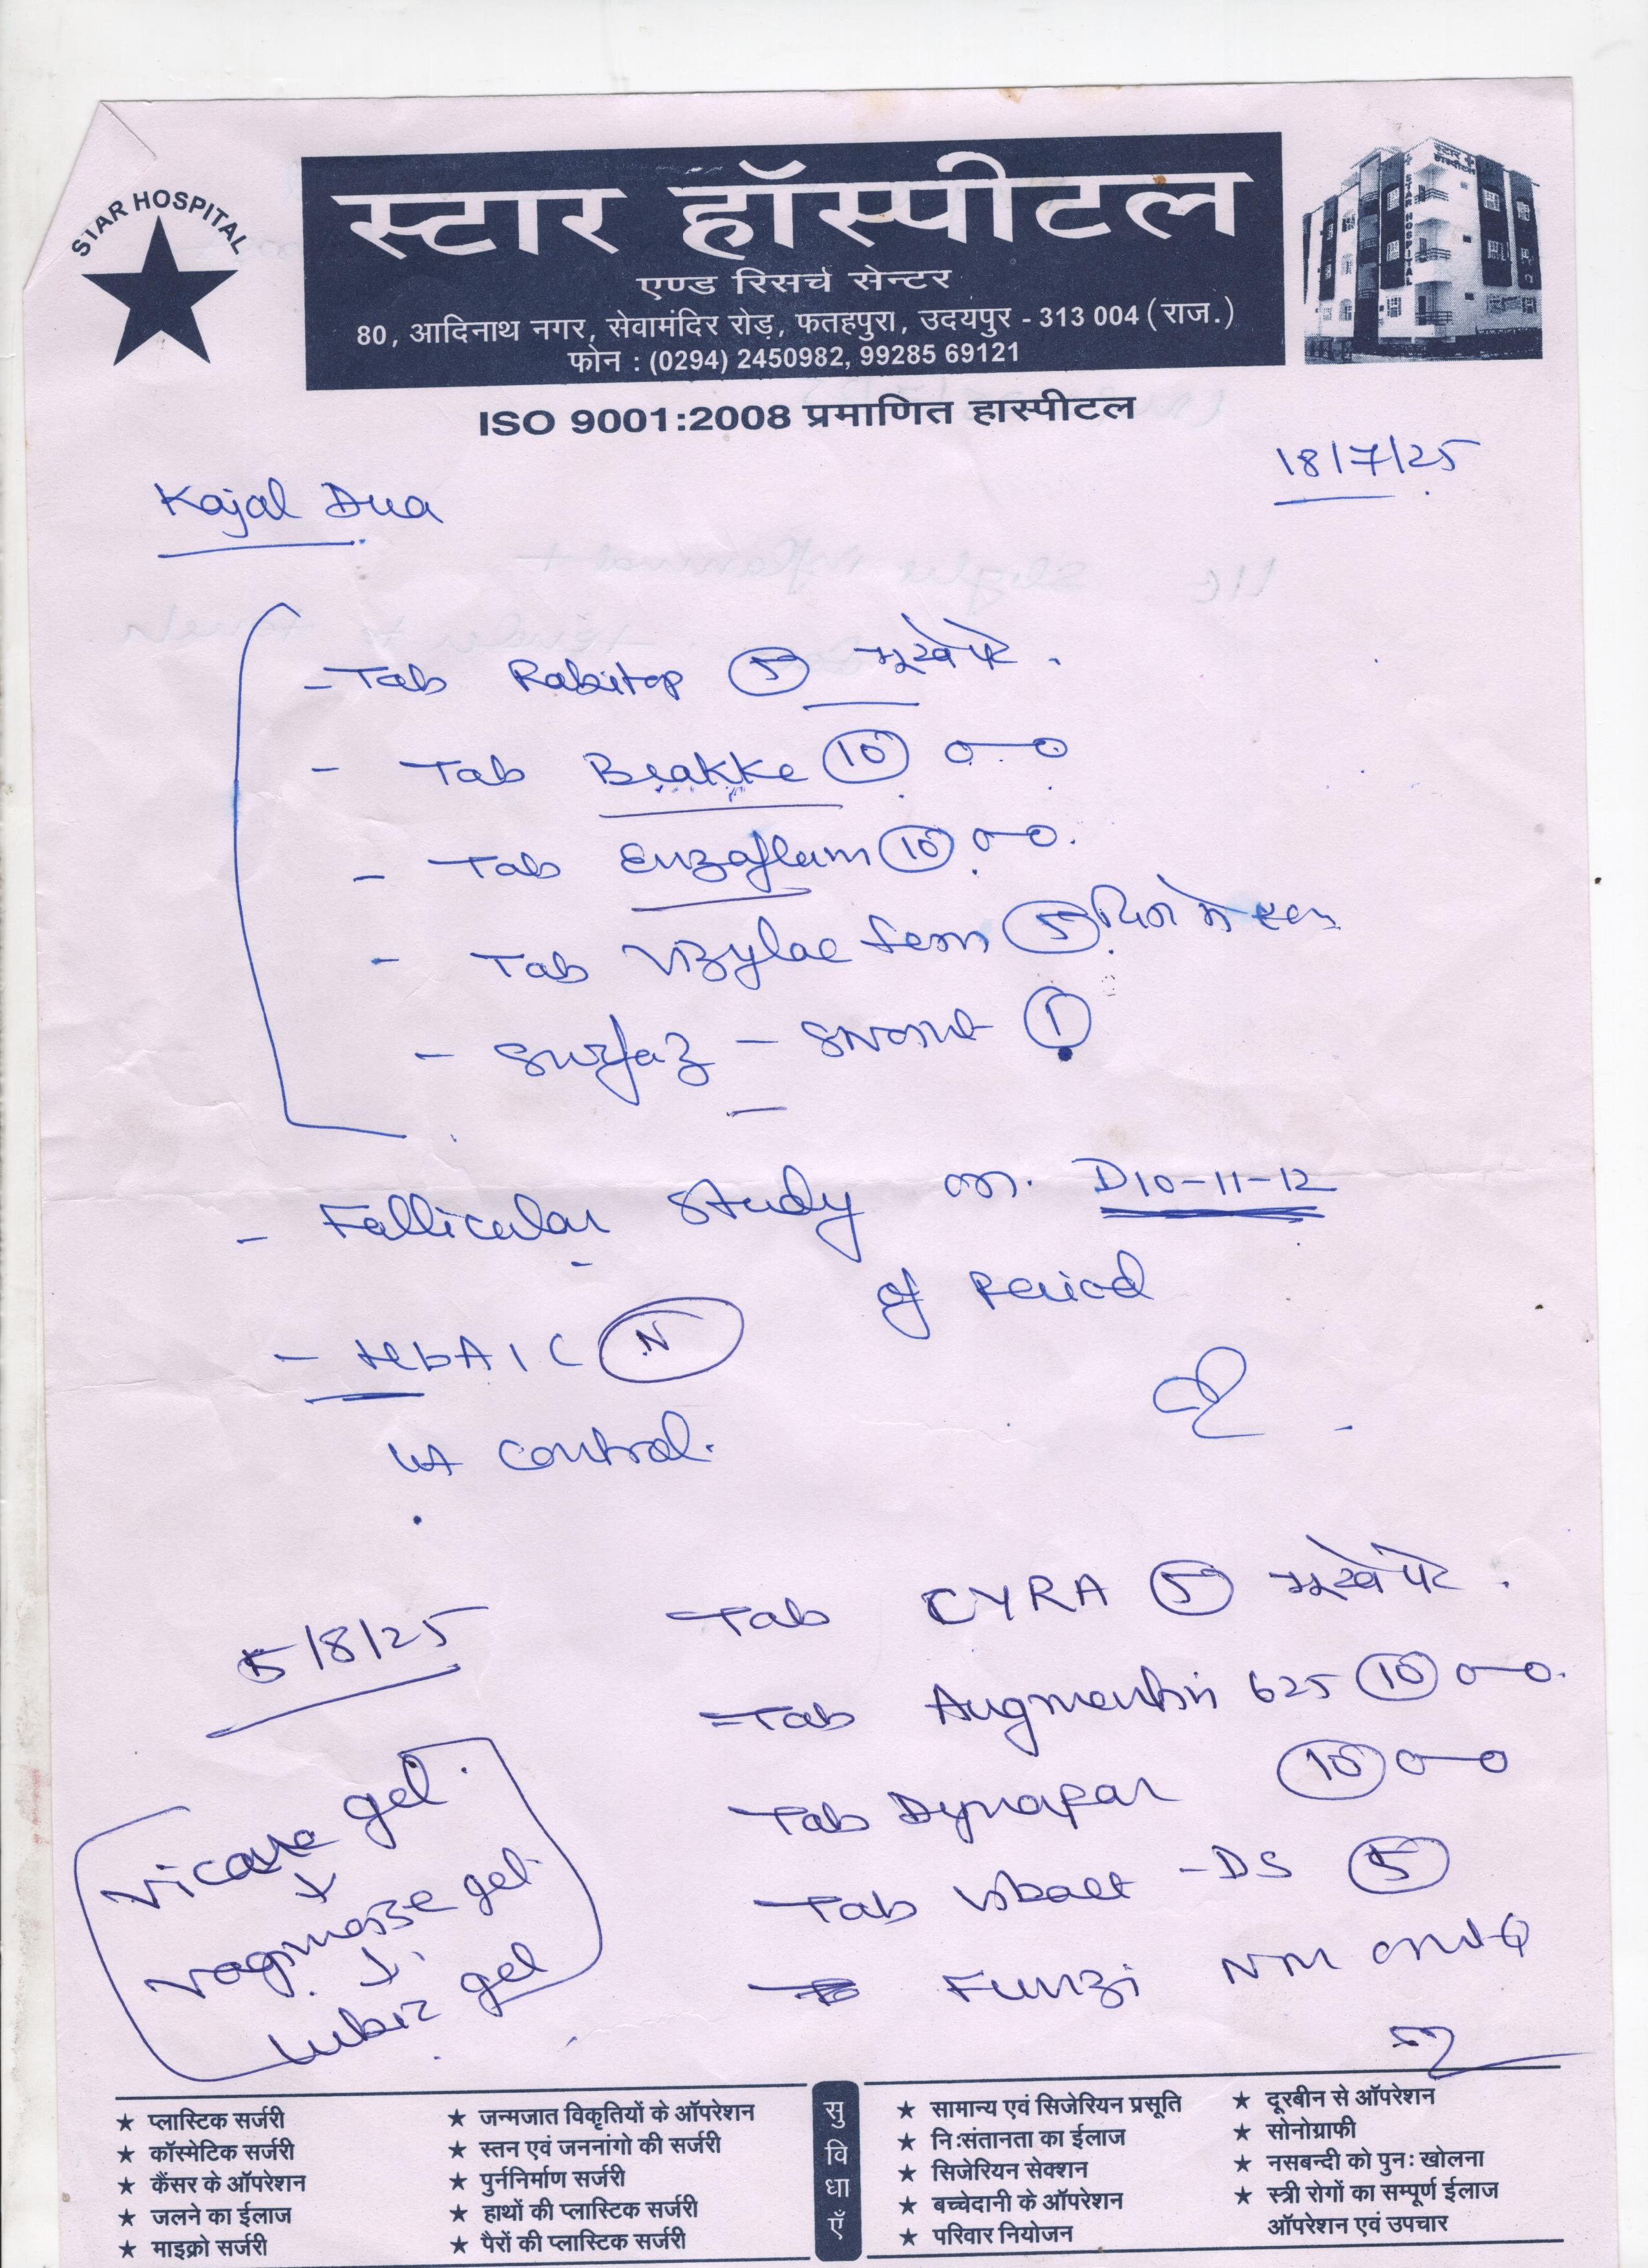 STAR HOSPITAL
स्टार हॉस्पीटल
एण्ड रिसर्च सेन्टर
80, आदिनाथ नगर, सेवामंदिर रोड़, फतहपुरा, उदयपुर - 313 004 (राज.)
फोन : (0294) 2450982, 99285 69121
ISO 9001:2008 प्रमाणित हास्पीटल
18/7/25
Kajal Dua
- Tab Rabitop 5 भूखे पेट.
- Tab Brakke 10 o—o
- Tab Enzoflam 10 o—o.
- Tab Vizylac fem 5 दिन में
- Surfaz - 1
- Follicular Study on. D10-11-12
of Period
- HbA1C N
wt control.
5/8/25
Tab CYRA 5 भूखे पेट.
Tab Augmentin 625 10 o—o.
Tab Dynapar 10 o—o
Tab -DS 5
Funzi
gel.
gel.
Lubiz gel
सुविधाएँ
★ प्लास्टिक सर्जरी
★ कॉस्मेटिक सर्जरी
★ कैंसर के ऑपरेशन
★ जलने का ईलाज
★ माइक्रो सर्जरी
★ जन्मजात विकृतियों के ऑपरेशन
★ स्तन एवं जननांगो की सर्जरी
★ पुर्ननिर्माण सर्जरी
★ हाथों की प्लास्टिक सर्जरी
★ पैरों की प्लास्टिक सर्जरी
★ सामान्य एवं सिजेरियन प्रसूति
★ निःसंतानता का ईलाज
★ सिजेरियन सेक्शन
★ बच्चेदानी के ऑपरेशन
★ परिवार नियोजन
★ दूरबीन से ऑपरेशन
★ सोनोग्राफी
★ नसबन्दी को पुनः खोलना
★ स्त्री रोगों का सम्पूर्ण ईलाज
ऑपरेशन एवं उपचार